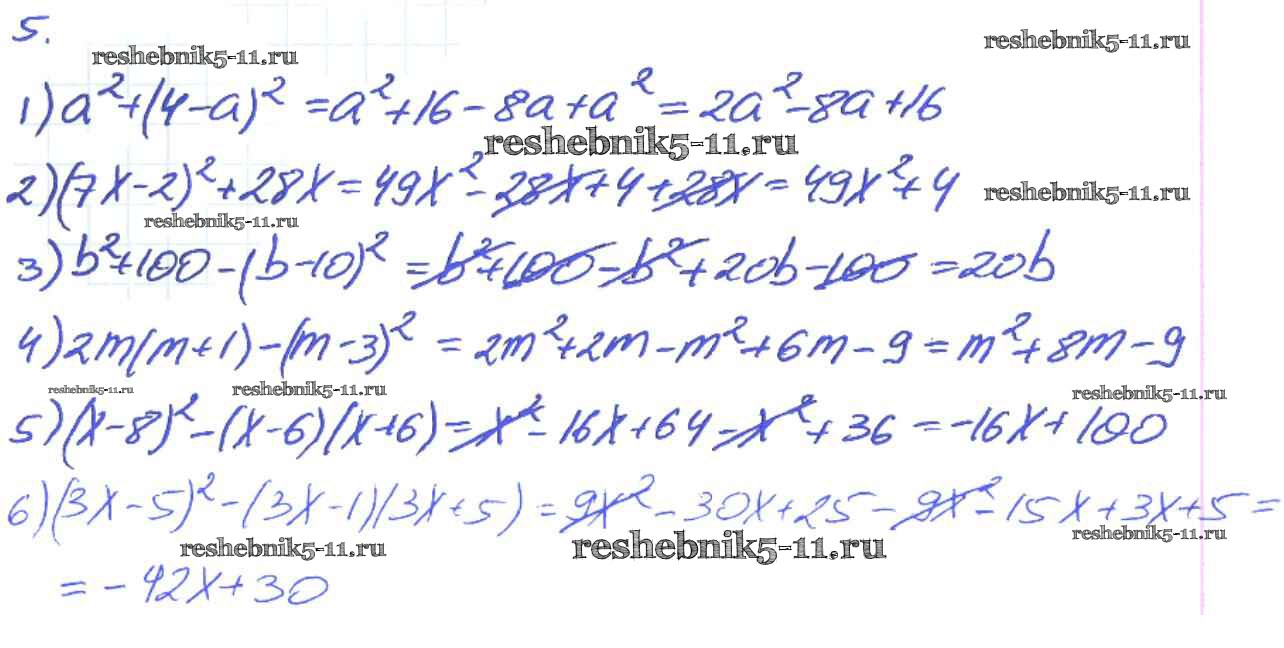 5.
reshebnik5-11.ru
reshebnik5-11.ru
1) a²+(4-a)² = a²+16-8a+a² = 2a²-8a+16
reshebnik5-11.ru
2) (7x-2)²+28x = 49x²-28x+4+28x = 49x²+4
reshebnik5-11.ru
reshebnik5-11.ru
3) b²+100-(b-10)² = b²+100-b²+20b-100 = 20b
4) 2m(m+1)-(m-3)² = 2m²+2m-m²+6m-9 = m²+8m-9
reshebnik5-11.ru
reshebnik5-11.ru
reshebnik5-11.ru
5) (x-8)²-(x-6)(x+6) = x²-16x+64-x²+36 = -16x+100
6) (3x-5)²-(3x-1)(3x+5) = 9x²-30x+25-9x²-15x+3x+5 =
reshebnik5-11.ru
reshebnik5-11.ru
reshebnik5-11.ru
= -42x+30